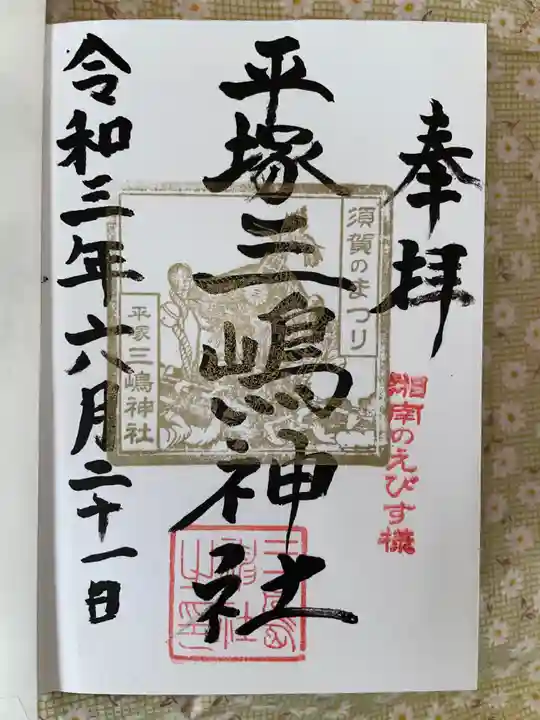 奉拝
湘南のえびす様
平塚三嶋神社
須賀のまつり
平塚三嶋神社
令和三年六月二十一日